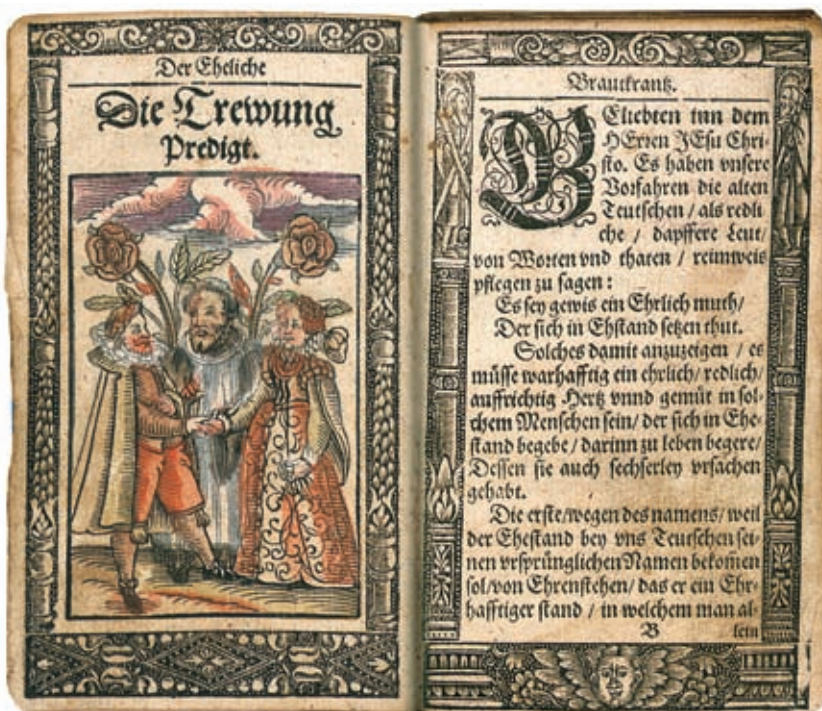 Der Eheliche
Die Trewung
Predigt.
Brautkrantz.
BEliebten inn dem
HErren JEsu Chri-
sto. Es haben vnsere
Vorfahren die alten
Teutschen / als redli
che / dapffere Leut /
von Worten vnd thaten / reimweis
pflegen zu sagen :
Es sey gewis ein Ehrlich muth /
Der sich in Ehstand setzen thut.
Solches damit anzuzeigen / es
müsse warhafftig ein ehrlich / redlich /
auffrichtig Hertz vnnd gemüt in sol-
chem Menschen sein / der sich in Ehe-
stand begebe / darinn zu leben begere /
Dessen sie auch sechserley vrsachen
gehabt.
Die erste / wegen des namens / weil
der Ehestand bey vns Teutschen sei-
nen vrsprünglichen Namen bekom̃en
sol / von Ehrenstehen / das er ein Ehr-
hafftiger stand / in welchem man al-
B lein